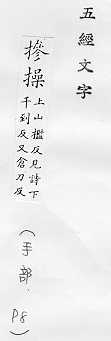 五經文字
摻操 上山檻反見詩下
千到反又倉刀反
(手部. P8)